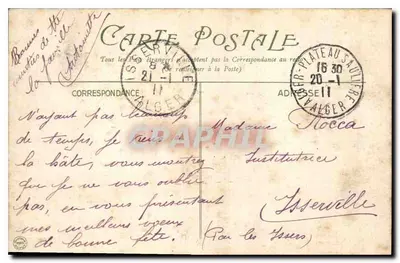 Bonnes
amitiés de tte
la famille
Antoinette
CARTE POSTALE
Tous les Pays étrangers n'acceptent pas la Correspondance au recto
(se renseigner à la Poste)
ISSERVILLE
21 -1
11
ALGER
ALGER-PLATEAU SAULIERE
16 30
20 -1
11
ALGER
CORRESPONDANCE
ADRESSE
N'ayant pas beaucoup
de temps, je viens
à la hâte, vous montrer
que je ne vous oublie
pas, en vous présentant
mes meilleurs vœux
de bonne fête.
Madame Rocca
Institutrice
Isserville
(Par les Issers)